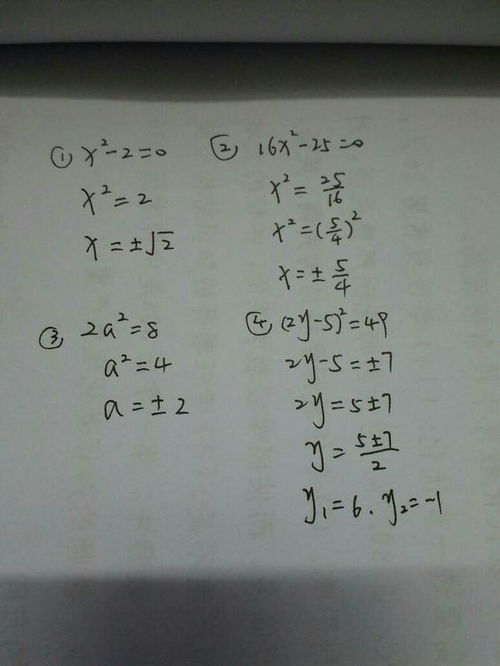 ① x²-2=0
x²=2
x=±√2
② 16x²-25=0
x²=25/16
x²=(5/4)²
x=±5/4
③ 2a²=8
a²=4
a=±2
④ (2y-5)²=49
2y-5=±7
2y=5±7
y=5±7/2
y₁=6. y₂=-1